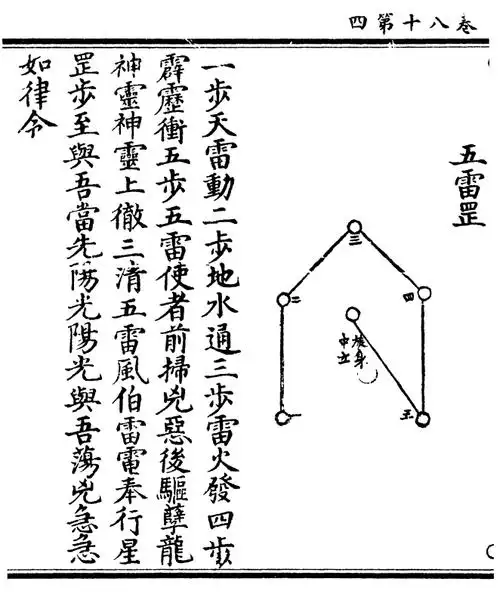 卷八十第四
五雷罡
一
二
三
四
五
身
中立
一步天雷動二步地水通三步雷火發四步
霹靂衝五步五雷使者前掃兇惡後驅孽龍
神靈神靈上徹三清五雷風伯雷電奉行星
罡步至與吾當先陽光陽光與吾蕩兇急急
如律令